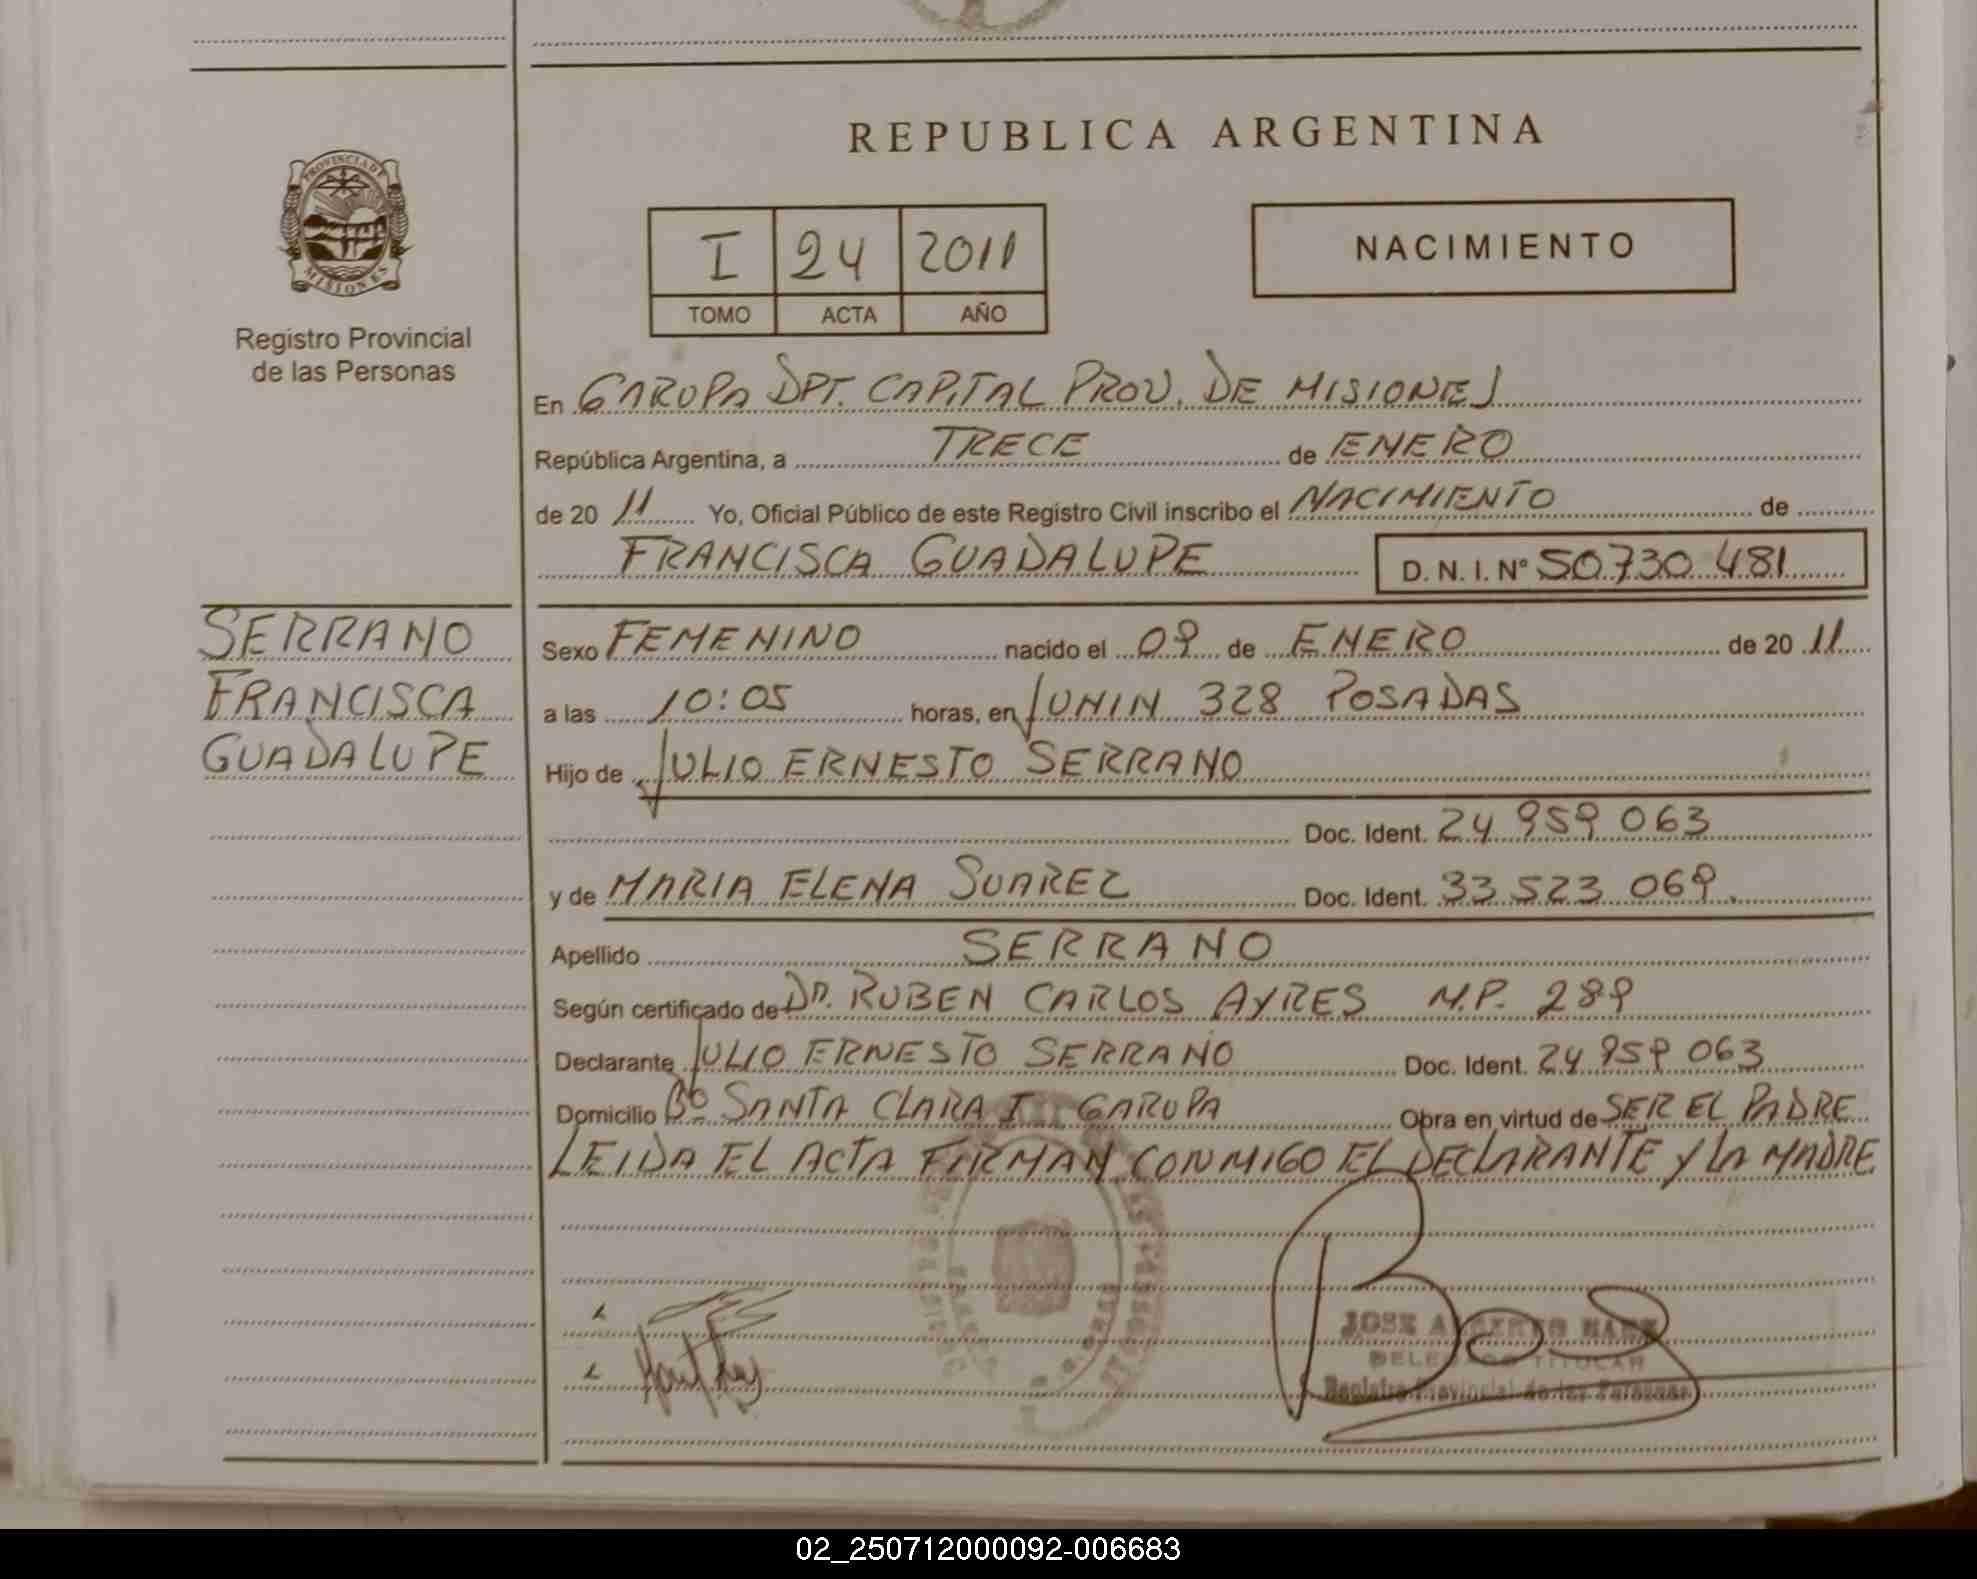 REPUBLICA ARGENTINA
PROVINCIA DE MISIONES
Registro Provincial
de las Personas
I 24 2011
TOMO ACTA AÑO
NACIMIENTO
En GARUPA DPT. CAPITAL PROV. DE MISIONES
República Argentina, a TRECE de ENERO
de 20 11 Yo, Oficial Público de este Registro Civil inscribo el NACIMIENTO de
FRANCISCA GUADALUPE D. N. I. Nº 50.730.481
SERRANO
FRANCISCA
GUADALUPE
Sexo FEMENINO nacido el 09 de ENERO de 20 11
a las 10:05 horas, en JUNIN 328 POSADAS
Hijo de JULIO ERNESTO SERRANO
Doc. Ident. 24 959 063
y de MARIA ELENA SUAREZ Doc. Ident. 33 523 069.
Apellido SERRANO
Según certificado de DR. RUBEN CARLOS AYRES M.P. 289
Declarante JULIO ERNESTO SERRANO Doc. Ident. 24 959 063
Domicilio Bº SANTA CLARA I GARUPA Obra en virtud de SER EL PADRE
LEIDA EL ACTA FIRMAN CONMIGO EL DECLARANTE Y LA MADRE
JOSE ALBERTO
DELEGADO TITULAR
Registro Provincial de las Personas
02_250712000092-006683